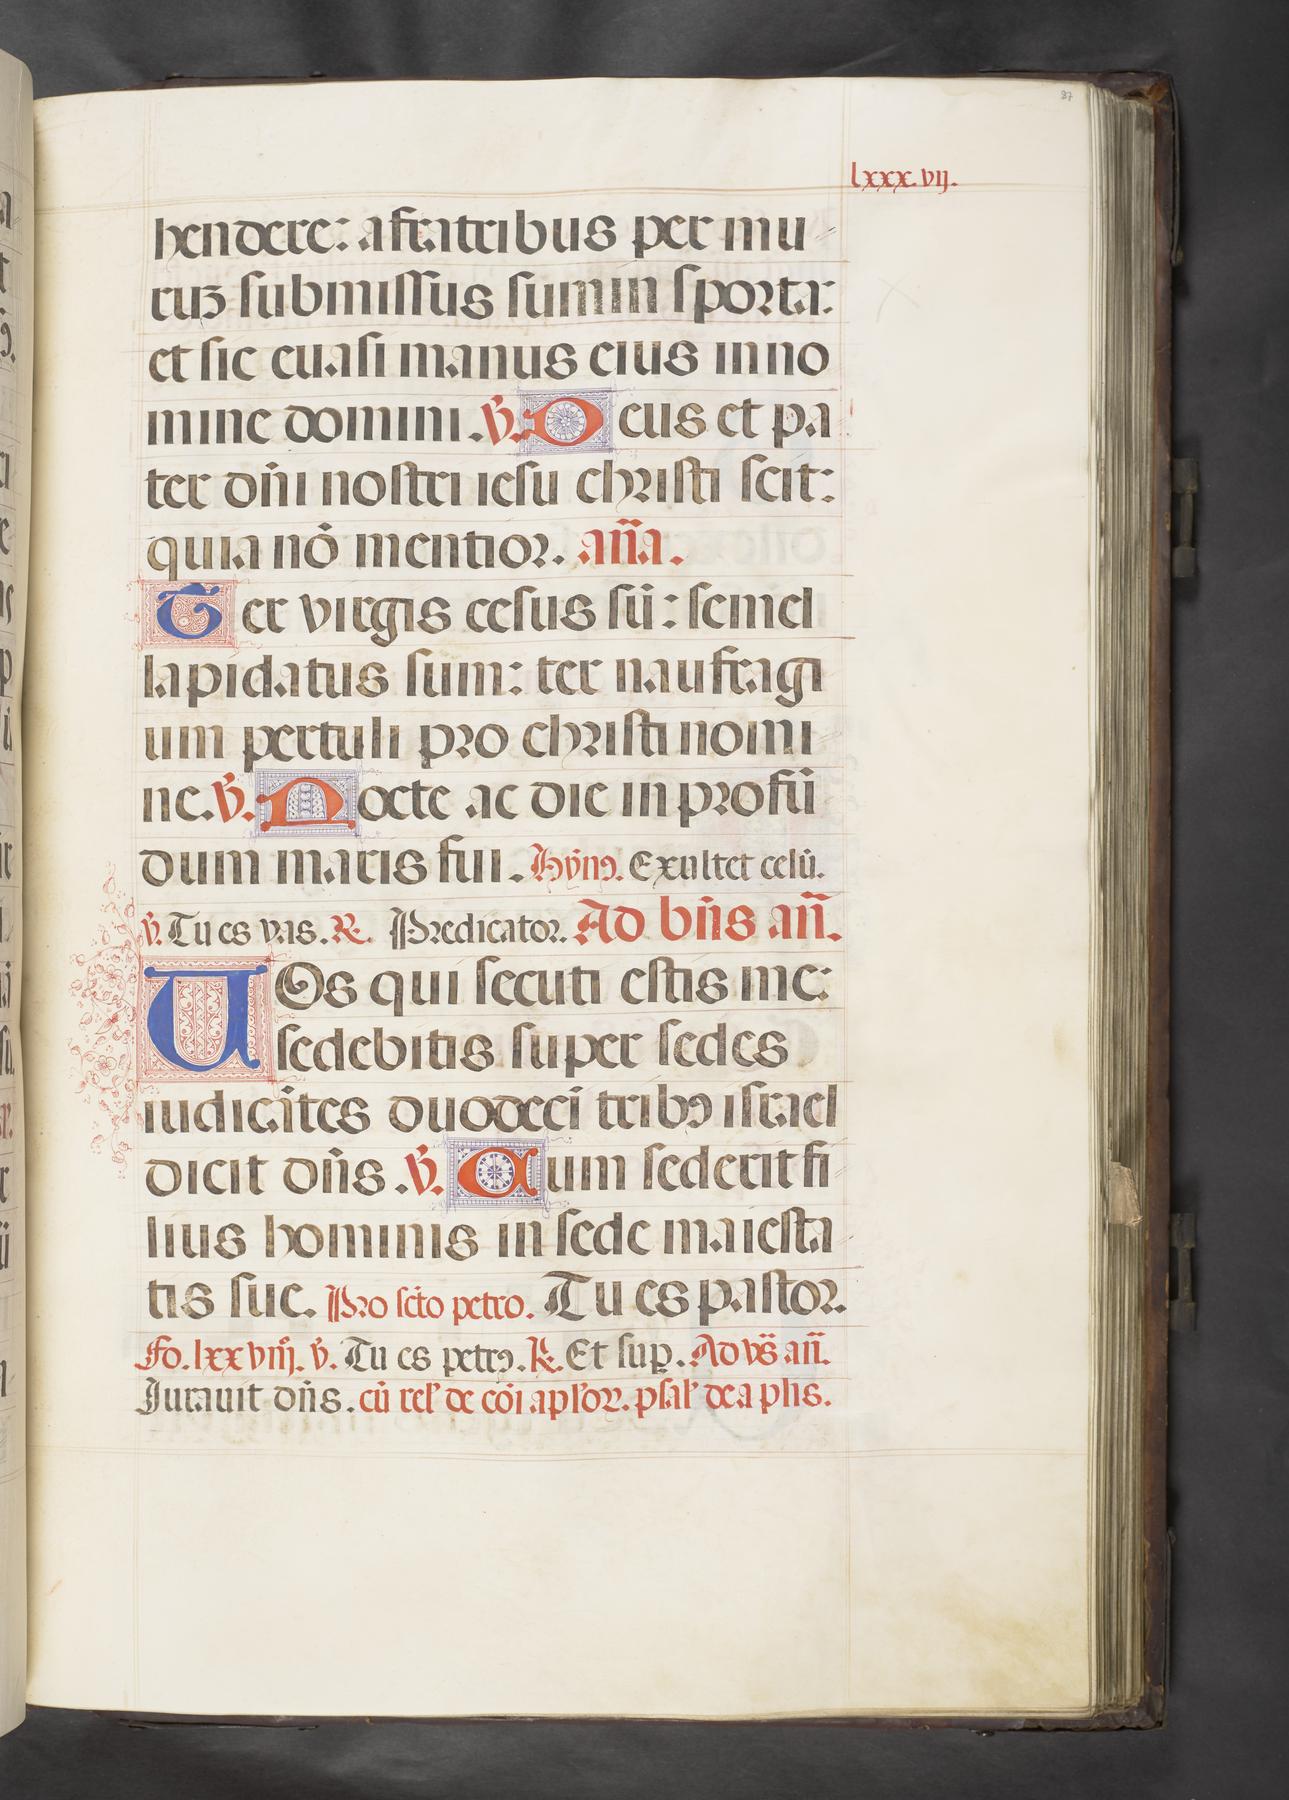 87
lxxx.vij.
hendere: a fratribus per mu
ruꝫ submissus sum in sporta:
et sic euasi manus eius in no
mine domini. ꝟ. Deus et pa
ter dn̄i nostri iesu christi scit:
quia nō mentior. an̄a.
Ter virgis cesus sū: semel
lapidatus sum: ter naufragi
um pertuli pro christi nomi
ne. ꝟ. Nocte ac die in profū
dum maris fui. Hȳnꝯ. Exultet celū.
ꝟ. Tu es vas. ℟. Predicator. Ad bn̄s an̄.
UOs qui secuti estis me:
sedebitis super sedes
iudicātes duodecī tribꝯ israel
dicit dn̄s. ꝟ. Cum sederit fi
lius hominis in sede maiesta
tis sue. Pro scto petro. Tu es pastor.
Fo. lxxviiij. ꝟ. Tu es petrꝯ. ℟. Et suꝑ. Ad vs̄ an̄.
Jurauit dn̄s. cū rel' de cōi apl'oꝛ. psal' de a plis.